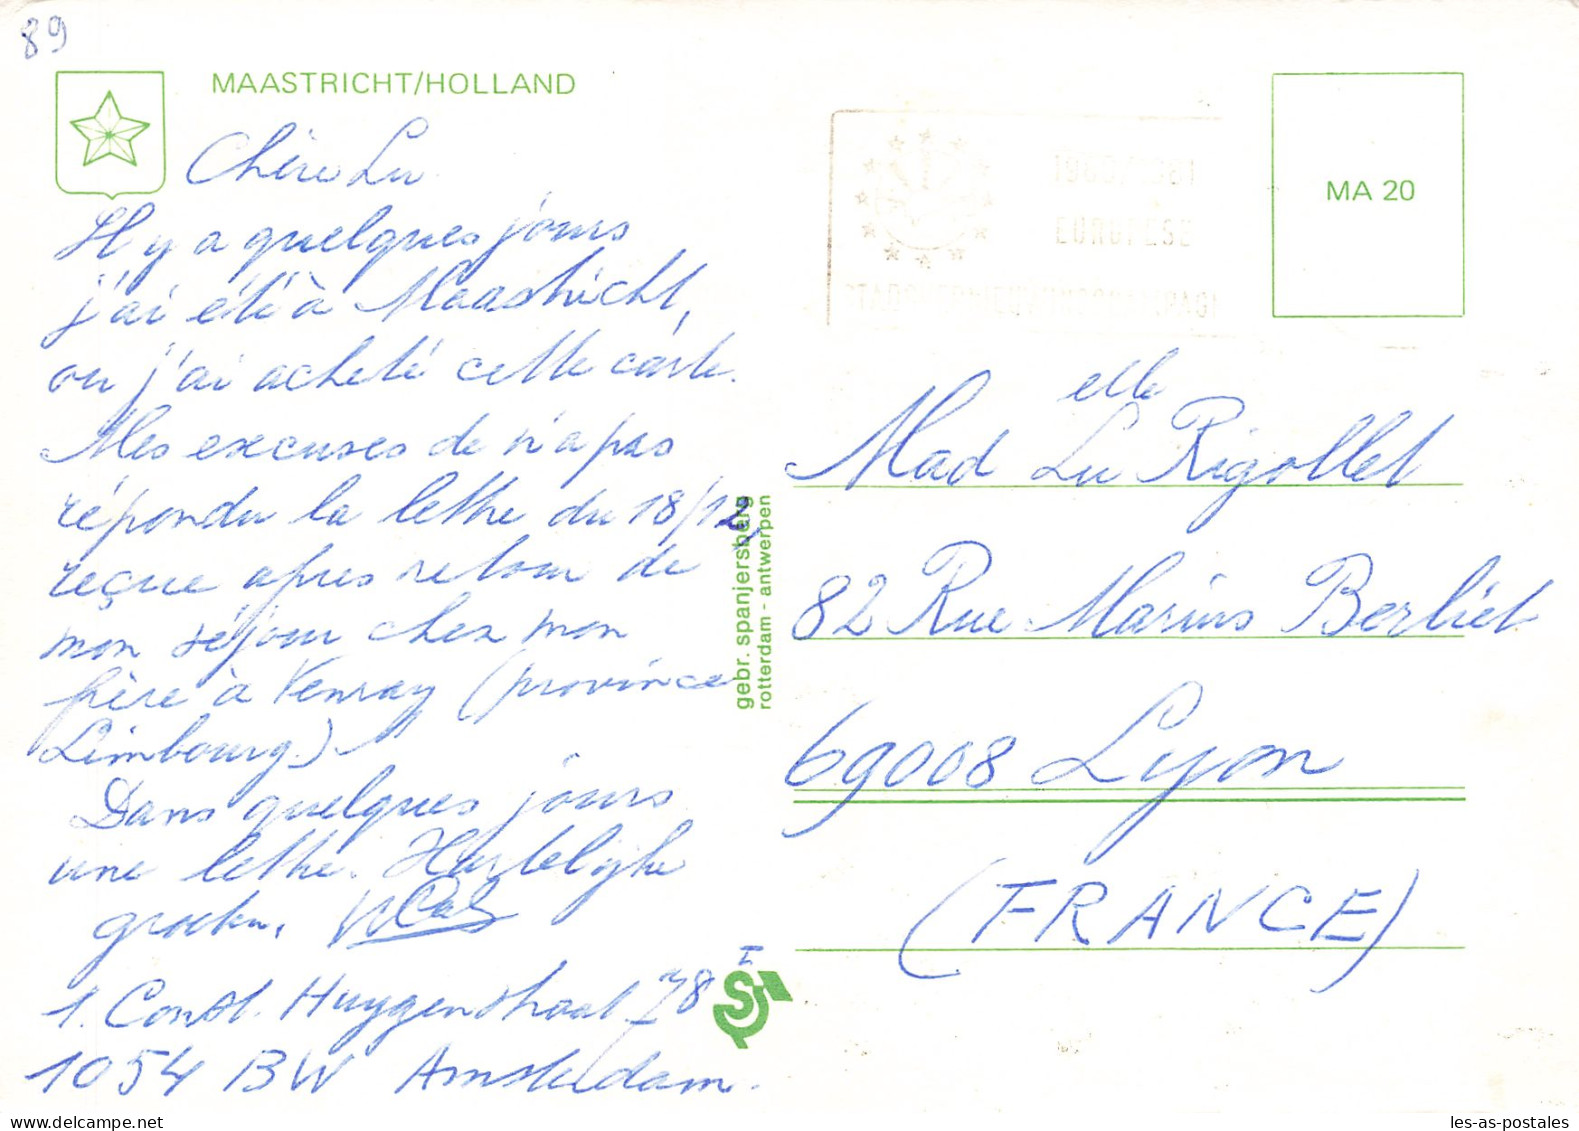 89
MAASTRICHT/HOLLAND
Chère Lu
Il y a quelques jours
j'ai été à Maastricht,
ou j'ai acheté cette carte.
Mes excuses de n'a pas
répondu la lettre du 18/12,
reçue apres retour de
mon séjour chez mon
frère à Venray (province
Limbourg.)
Dans quelques jours
une lettre. Hartelijke
groeten.
1. Const. Huygenstraat 78 I
1054 BW Amsterdam.
gebr. spanjersberg
rotterdam - antwerpen
EUROPESE
MA 20
elle
Mad Lu Rigollet
82 Rue Marius Berliet
69008 Lyon
(FRANCE)
les-as-postales